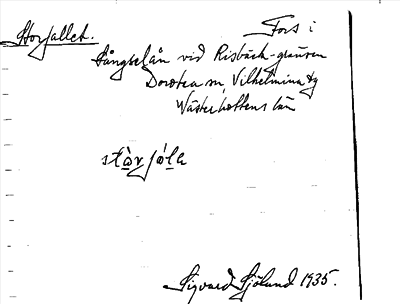 Storfallet. Fors i
Långselån vid Risbäck-gränsen
Dorotea sn, Vilhelmina tg
Västerbottens län
stòrfálₑ
Sigvard Sjölund 1935.